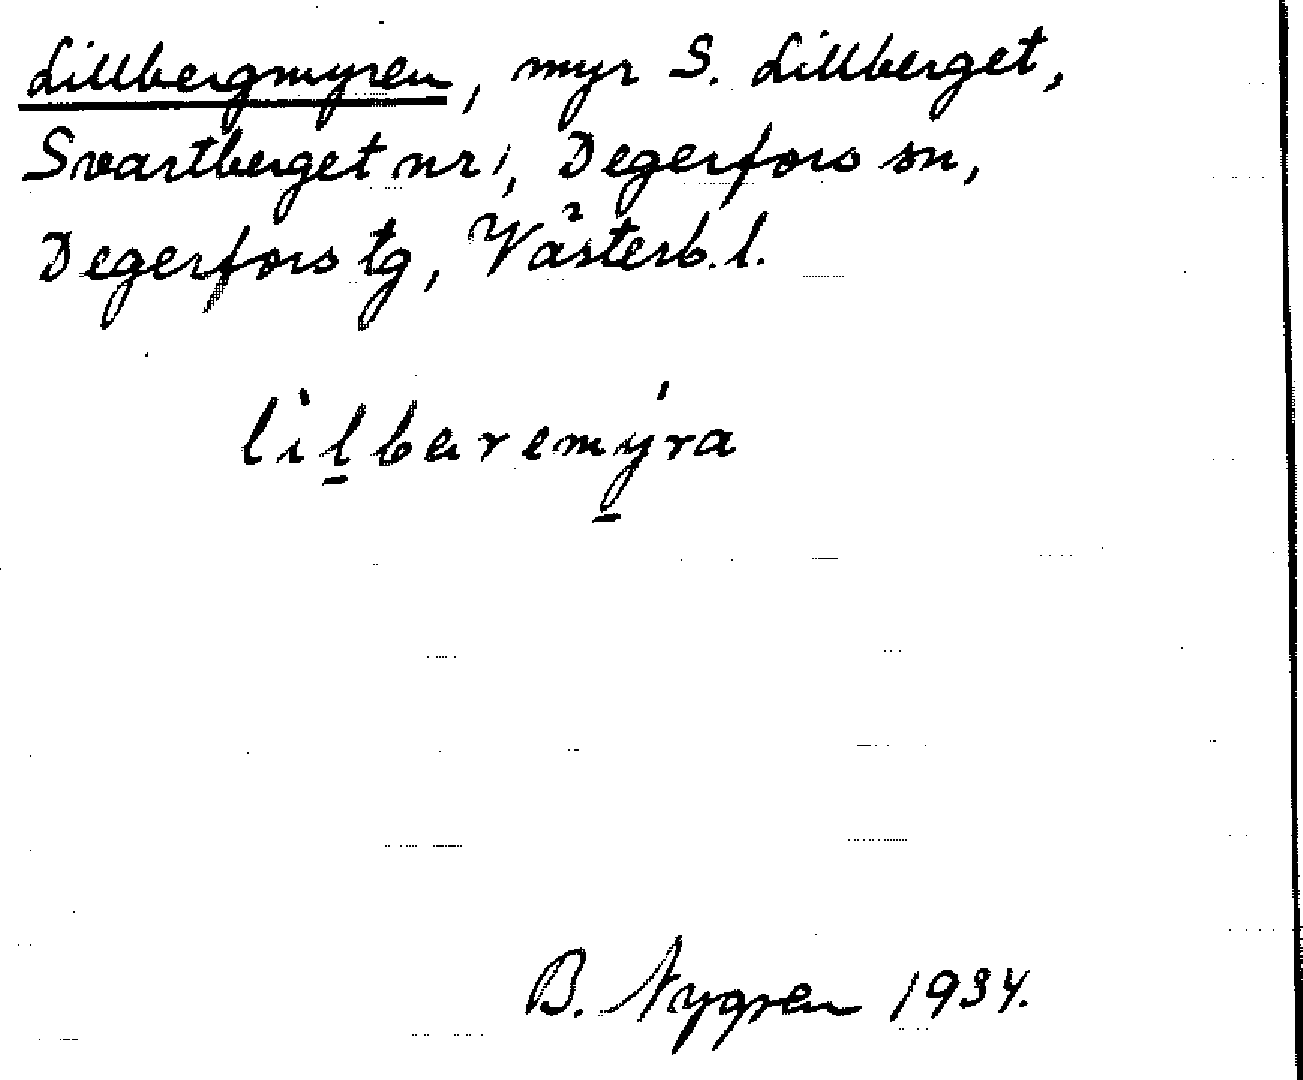 Lillbergmyren, myr S. Lillberget,
Svartberget nr 1, Degerfors sn,
Degerfors tg, Västerb. l.
lìlbaremýra
B. Nygren 1934.